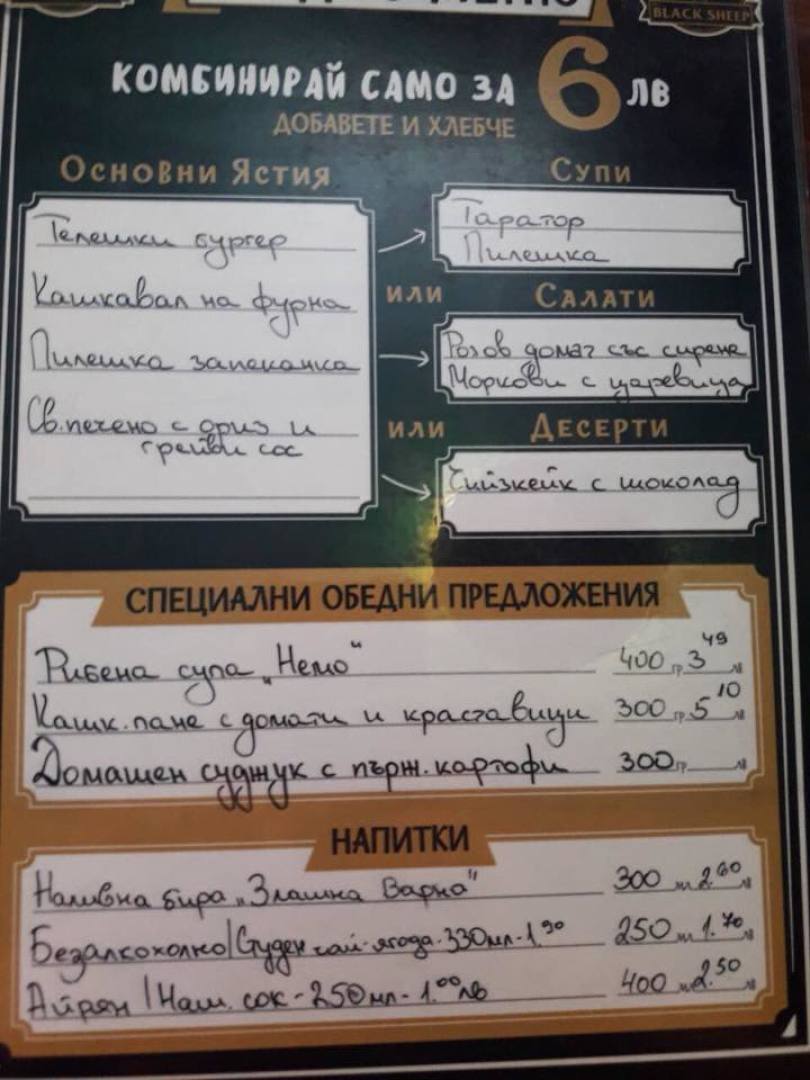 BLACK SHEEP
КОМБИНИРАЙ САМО ЗА 6 ЛВ
ДОБАВЕТЕ И ХЛЕБЧЕ
Основни Ястия
Телешки бургер
Кашкавал на фурна
Пилешка запеканка
Св.печено с ориз и
грейви сос
Супи
Таратор
Пилешка
или
Салати
Розов домат със сирене
Моркови с царевица
или
Десерти
Чийзкейк с шоколад
СПЕЦИАЛНИ ОБЕДНИ ПРЕДЛОЖЕНИЯ
Рибена супа „Немо" 400 гр 3 49 лв
Кашк.пане с домати и краставици 300 гр 5 10 лв
Домашен суджук с пърж.картофи 300 гр лв
НАПИТКИ
Наливна бира „Златна Варна" 300 мл 2.60 лв
Безалкохолно/Студен чай-ягода-330мл-1.90 250 мл 1.70 лв
Айрян /Наш. сок-250мл-1.00лв 400 мл 2.50 лв